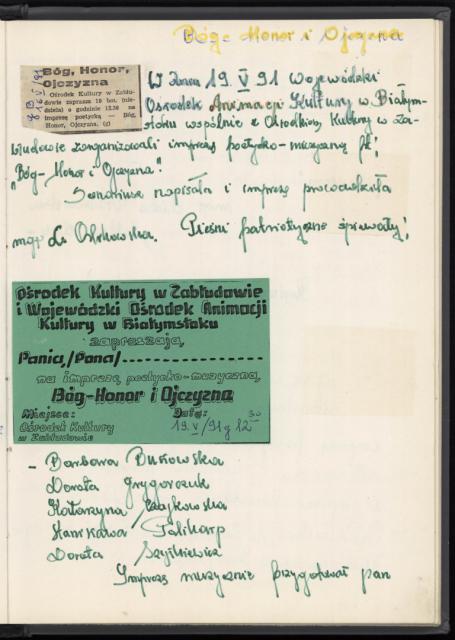 Bóg - Honor i Ojczyzna
Bóg, Honor,
Ojczyzna
Ośrodek Kultury w Zabłu-
dowie zaprasza 19 bm. (nie-
dziela) o godzinie 12.30 na
imprezę poetycką — Bóg,
Honor, Ojczyzna. (z)
W dniu 19 V 91 Wojewódzki
Ośrodek Animacji Kultury w Białym-
stoku wspólnie z Ośrodkiem Kultury w Za-
błudowie zorganizowali imprezę poetycko-muzyczną pt;
"Bóg-Honor i Ojczyzna".
Scenariusz napisała i imprezę prowadziła
mgr L. Pieśni patriotyczne śpiewały;
Ośrodek Kultury w Zabłudowie
i Wojewódzki Ośrodek Animacji
Kultury w Białymstoku
zapraszają,
Panią/Pana/
na imprezę poetycko-muzyczną,
Bóg-Honor i Ojczyzna
Miejsce: Data:
Ośrodek Kultury 19.V/91 g 12 30
w Zabłudowie
- Barbara Bukowska
Dorota Grygorczuk
Katarzyna
Stanisława Polikarp
Dorota
Imprezę muzycznie przygotował pan